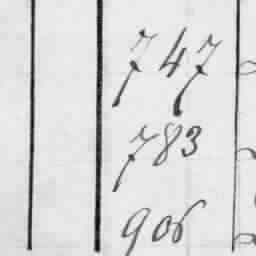 747
783
906